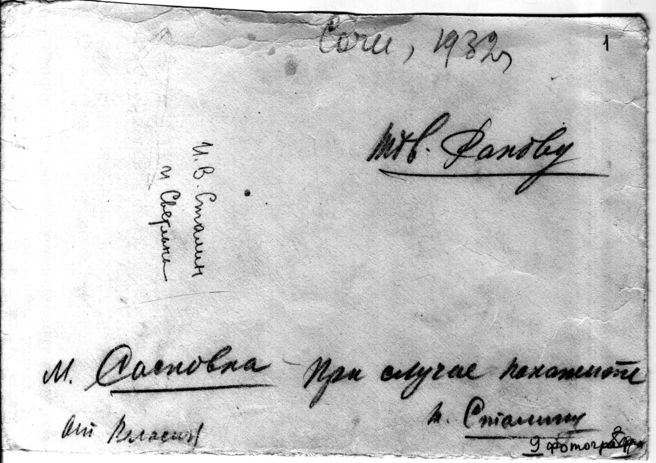 Сочи, 1932г
1
тов. Фанову
И. В. Сталин
и Светлана
м. Сосновка При случае покажите
т. Сталину
от
9 фотографий